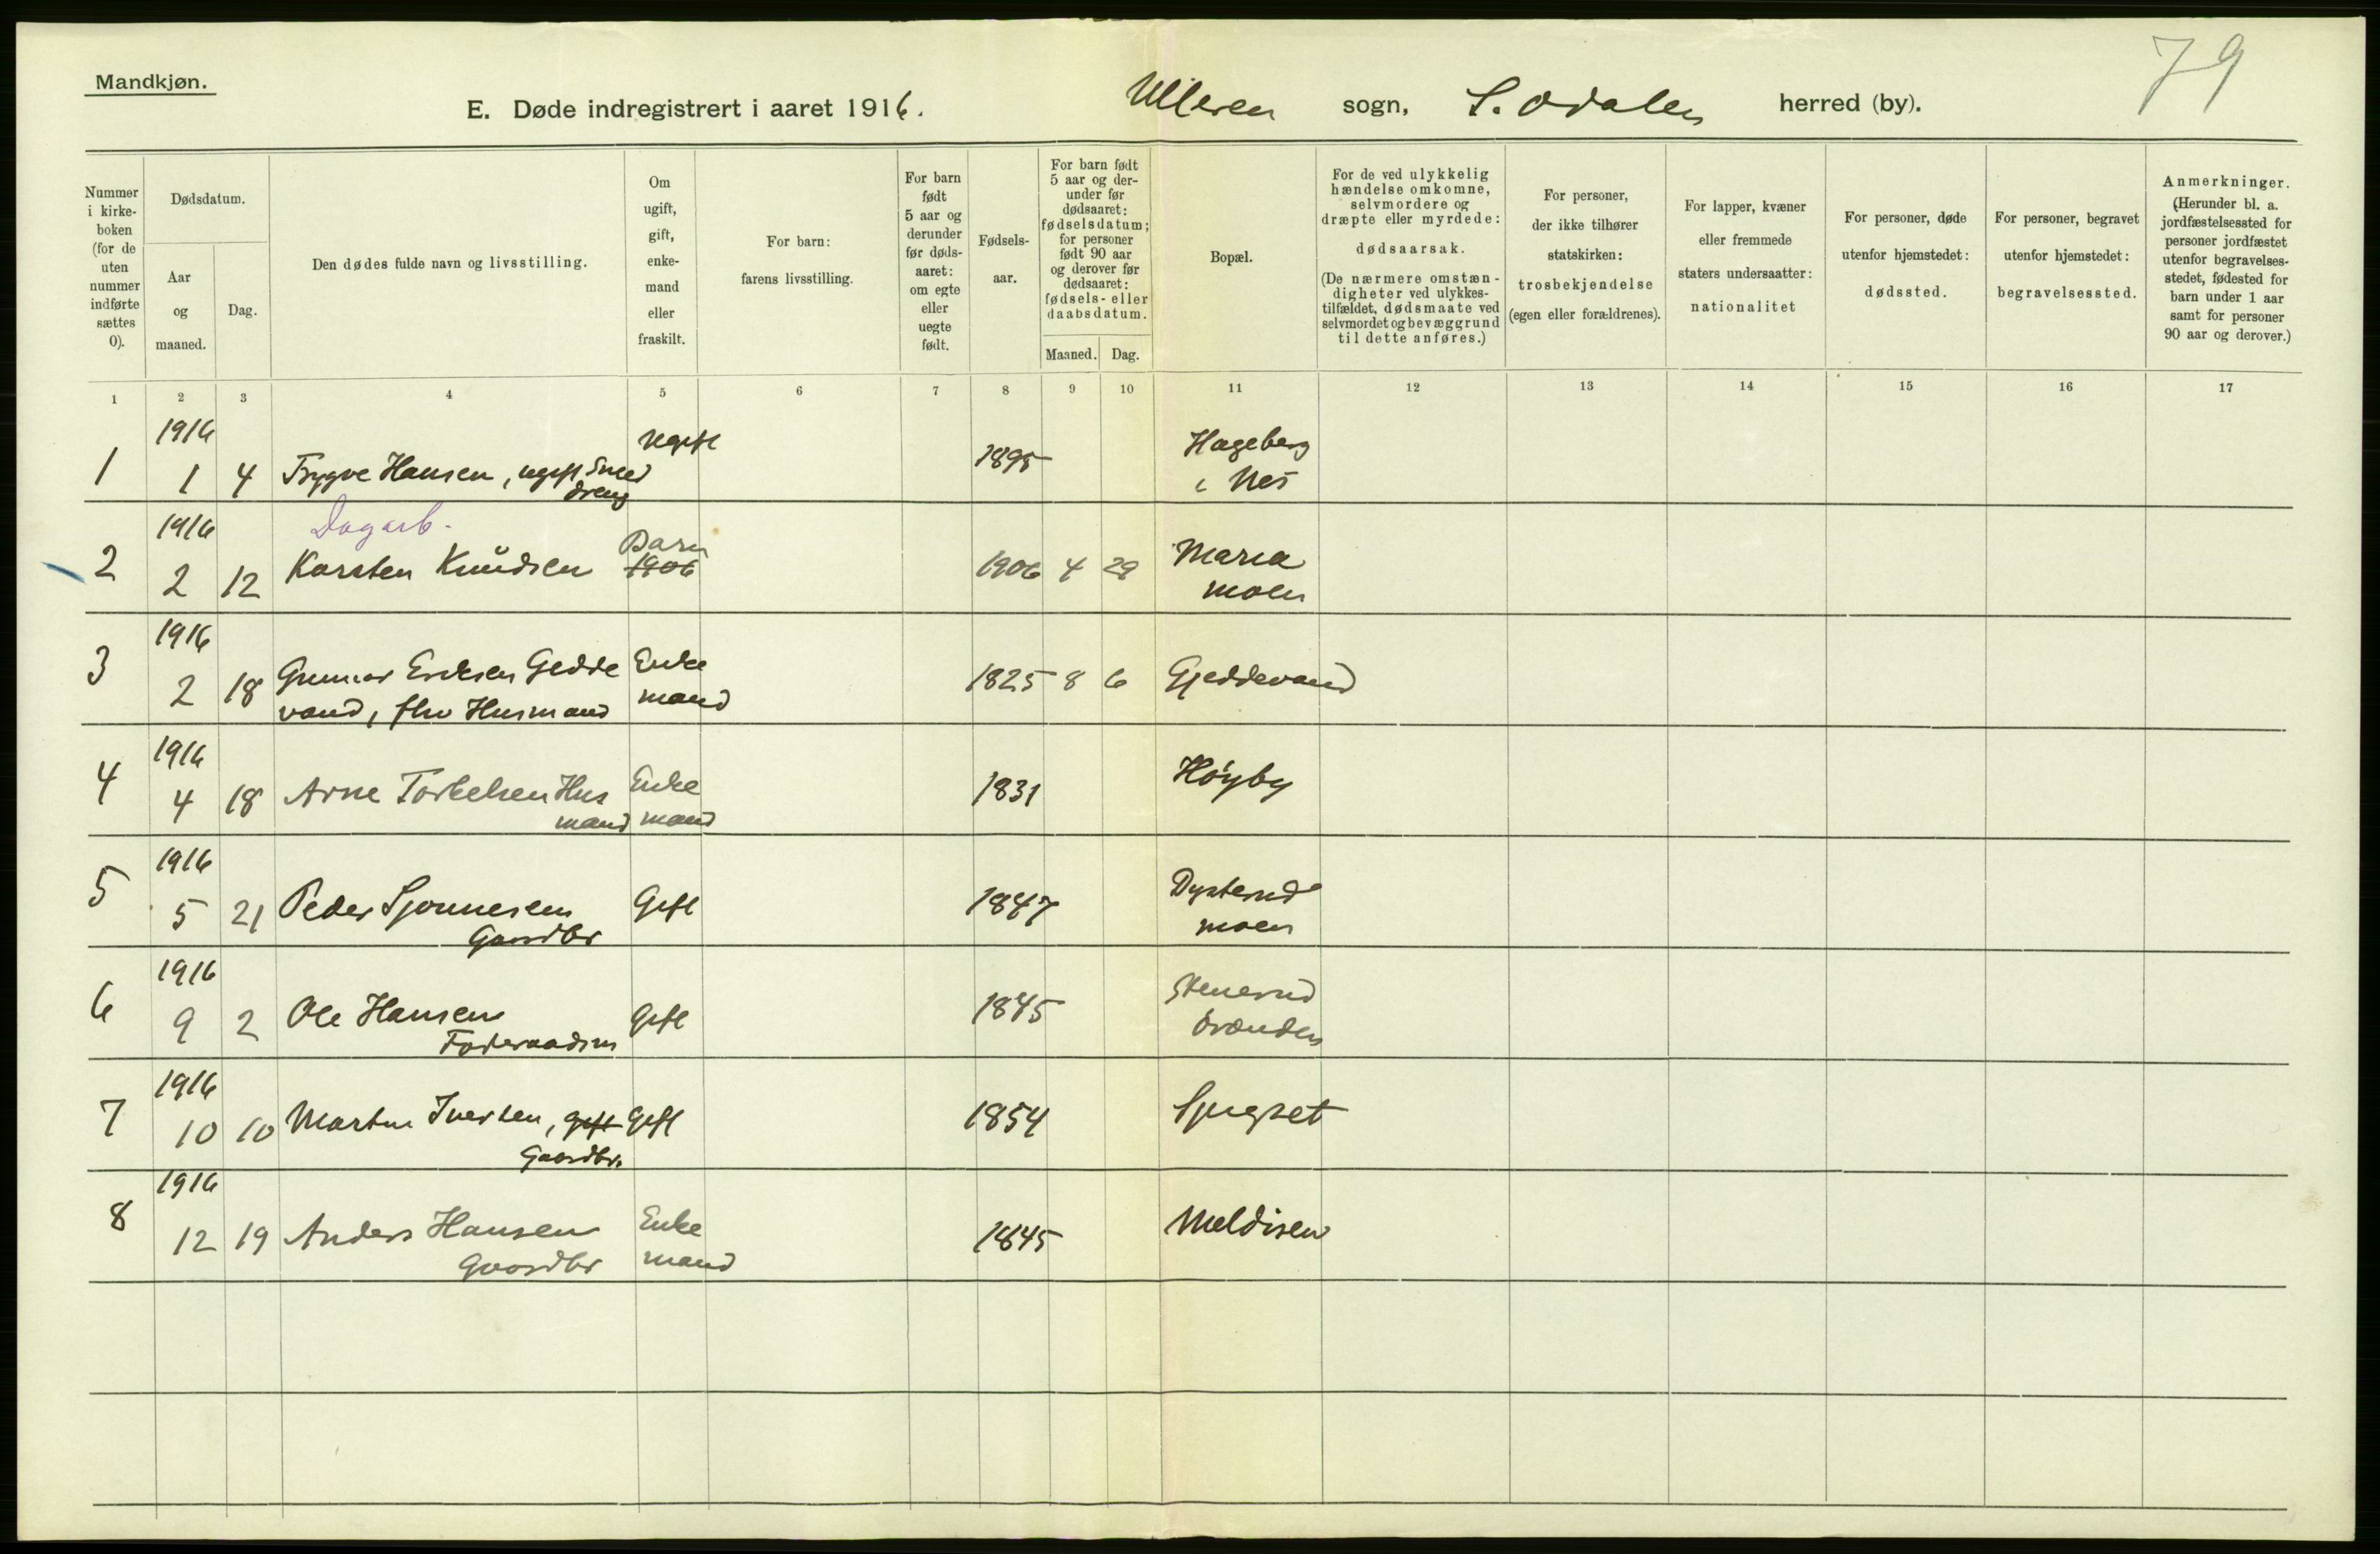 79
Mandkjøn.
E. Døde indregistrert i aaret 1916. Ulleren sogn, S. Odalen herred (by).
Nummer i kirke-boken (for de uten nummer indførte sættes 0).
Dødsdatum.
Aar og maaned.
Dag.
Den dødes fulde navn og livsstilling.
Om ugift, gift, enke-mand eller fraskilt.
For barn: farens livsstilling.
For barn født 5 aar og derunder før døds-aaret: om egte eller uegte født.
Fødsels-aar.
For barn født 5 aar og der-under før dødsaaret: fødselsdatum; for personer født 90 aar og derover før dødsaaret: fødsels- eller daabsdatum.
Maaned. Dag.
Bopæl.
For de ved ulykkelig hændelse omkomne, selvmordere og dræpte eller myrdede: dødsaarsak. (De nærmere omstæn-digheter ved ulykkes-tilfældet, dødsmaate ved selvmordet og bevæggrund til dette anføres.)
For personer, der ikke tilhører statskirken: trosbekjendelse (egen eller forældrenes).
For lapper, kvæner eller fremmede staters undersaatter: nationalitet
For personer, døde utenfor hjemstedet: dødssted.
For personer, begravet utenfor hjemstedet: begravelsessted.
Anmerkninger. (Herunder bl. a. jordfæstelsessted for personer jordfæstet utenfor begravelses-stedet, fødested for barn under 1 aar samt for personer 90 aar og derover.)
1 2 3 4 5 6 7 8 9 10 11 12 13 14 15 16 17
1916 ugift Hageberg
1 1 4 Trygve Hansen, ugift Smed 1895 i Nes
dreng
1916 Dagarb. Barn
2 2 12 Karsten Knudsen 1906 1906 4 29 Maria
moen
1916
3 2 18 Gunnar Eriksen Gedde Enke 1825 8 6 Gjeddevand
vand, fhv Husmand mand
1916
4 4 18 Arne Torkelsen Hus Enke 1831 Höyby
mand mand
1916
5 5 21 Peder Sjonnesen Gift 1847 Dysterud
Gaardbr moen
1916
6 9 2 Ole Hansen Gift 1845 Stenerud
Föderaadsm brænden
1916
7 10 10 Martin Iversen, gift Gift 1854 Spigset
Gaardbr.
1916
8 12 19 Anders Hansen Enke 1845 Meldisen
Gaardbr mand